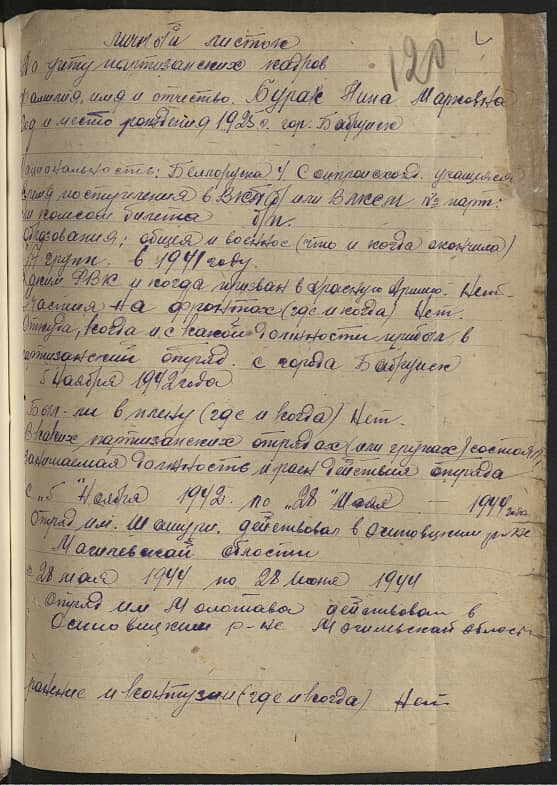 личной листок
120
По учту партизанских кадров
Фамилия, имя и отчество. Бурак Нина Марковна
Год и место рождения 1925 г. гор. Бабруиск
Национальность: Белларуска 4) Соцпроисхожд. учащаяся
время поступления в ВКП(б) или ВЛКСМ № парт:
или комсом билета б/п.
Образования; общея и военное (что и когда окончила)
групп. в 1941 году.
Каким РВК и когда призван в красную Армию. Нет.
Участия на фронтах (где и когда) Нет.
Откуда, когда и с какой должности прибыл в
партизанский отряд. с города Бабруиск
5 Ноября 1942 года
Был-ли в плену (где и когда) Нет.
В каких партизанских отрядах (или групах) состоял,
занимаемая должность и раен действия отряда
с „5" Ноября 1942. по „28" Мая — 1944 года
Отряд им. действовал в Осиповицким р-не
Магилевской области
с 28 мая 1944 по 28 Июня 1944
Отряд им Молотава действовал в
Осиповицким р-не Могильской области
ранение и контузии (где и когда) Нет